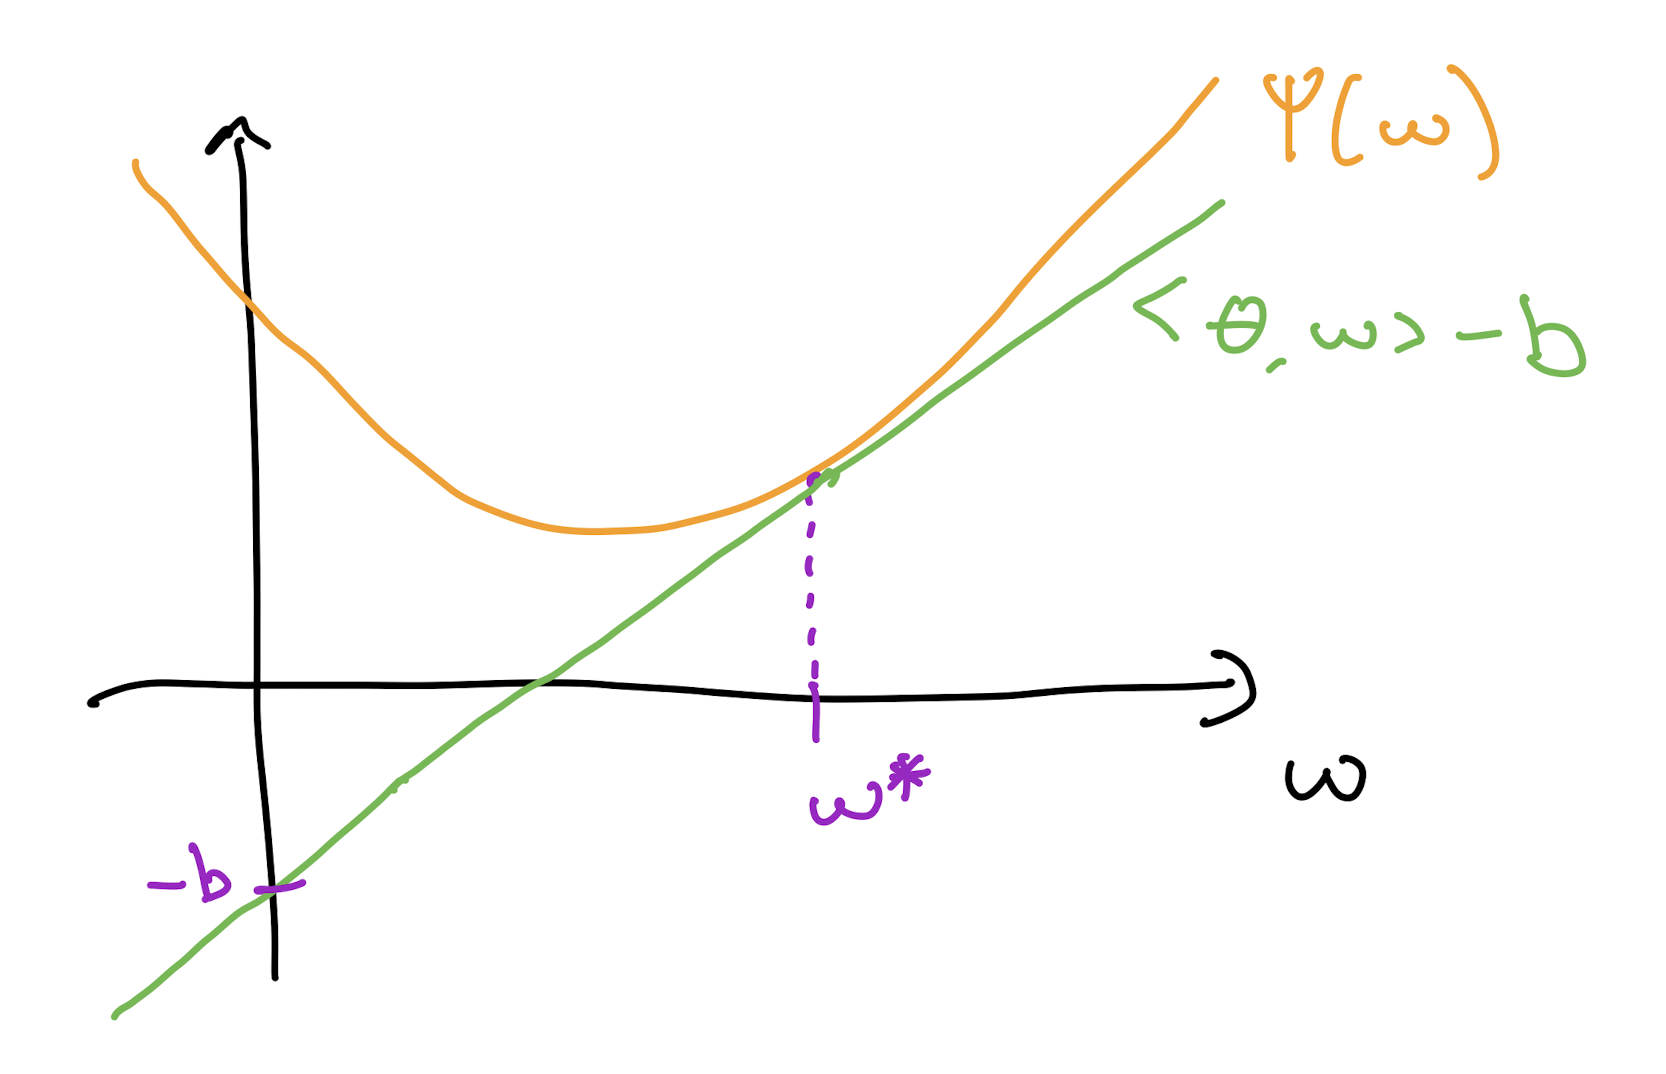 Ψ(ω)
<θ, ω> - b
ω
ω*
-b